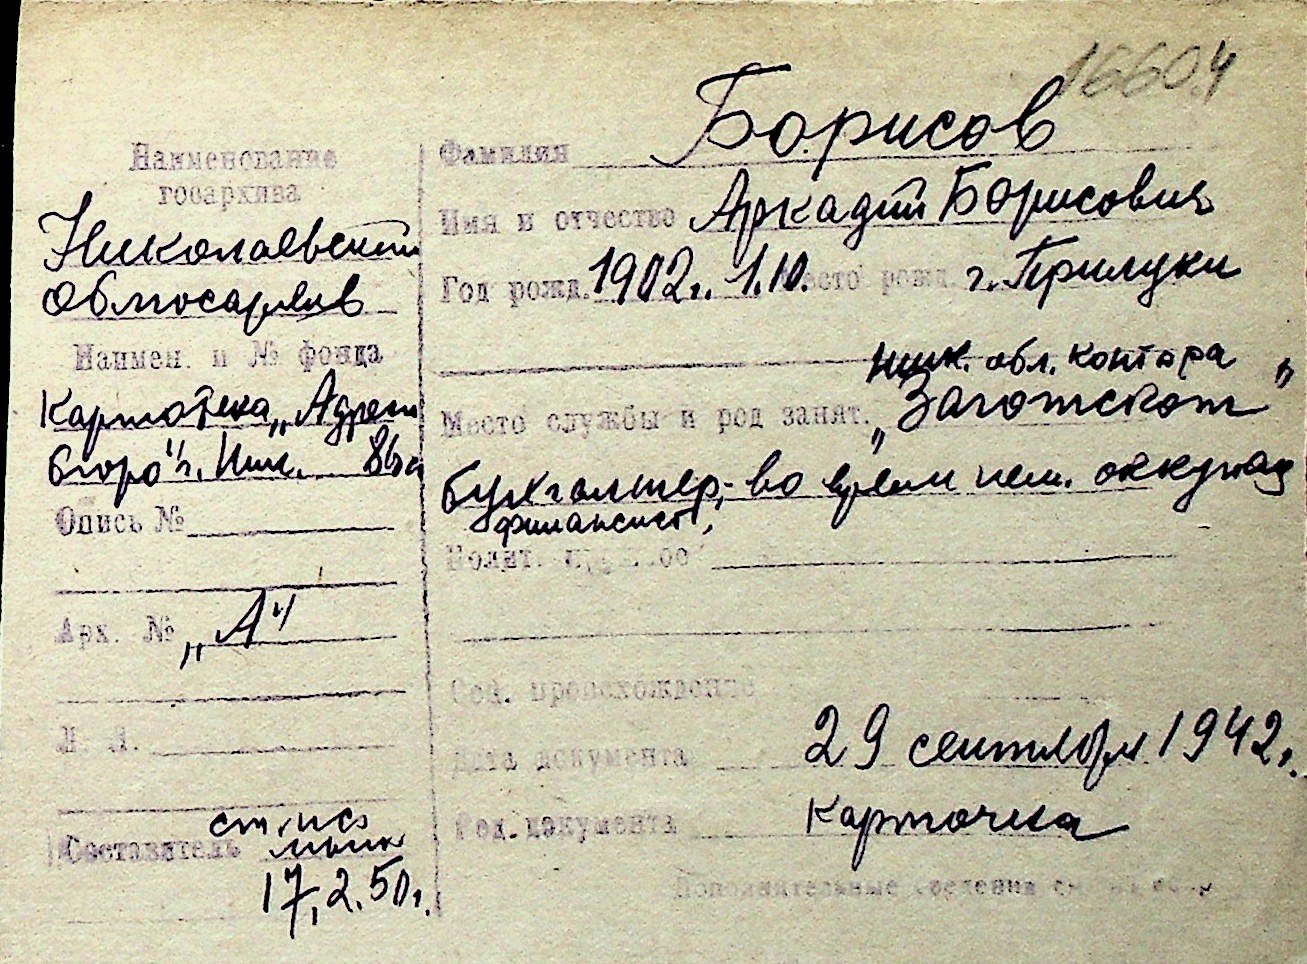 16604
Наименование
госархива
Николаевский
Облгосархив
Наимен. и № фонда
Картотека „Адресн
бюро" г. Ник. 86а
Опись №
Арх. № „А"
Л. Л.
Составитель
17.2.50г.
Фамилия Борисов
Имя и отчество Аркадий Борисович
Год рожд. 1902г. 1.10. Место рожд. г. Прилуки
Ник. обл. контора
Место службы и род занят. „Заготскот"
бухгалтер,- во время нем. оккупац
финансист,
Полит.
Соц. происхождение
Дата документа 29 сентября 1942г.
Род. документа Карточка
Дополнительные сведения см. на обор.